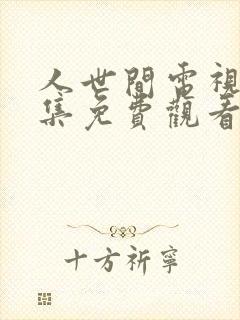 人世間電視
集免費觀看
十方祈寧